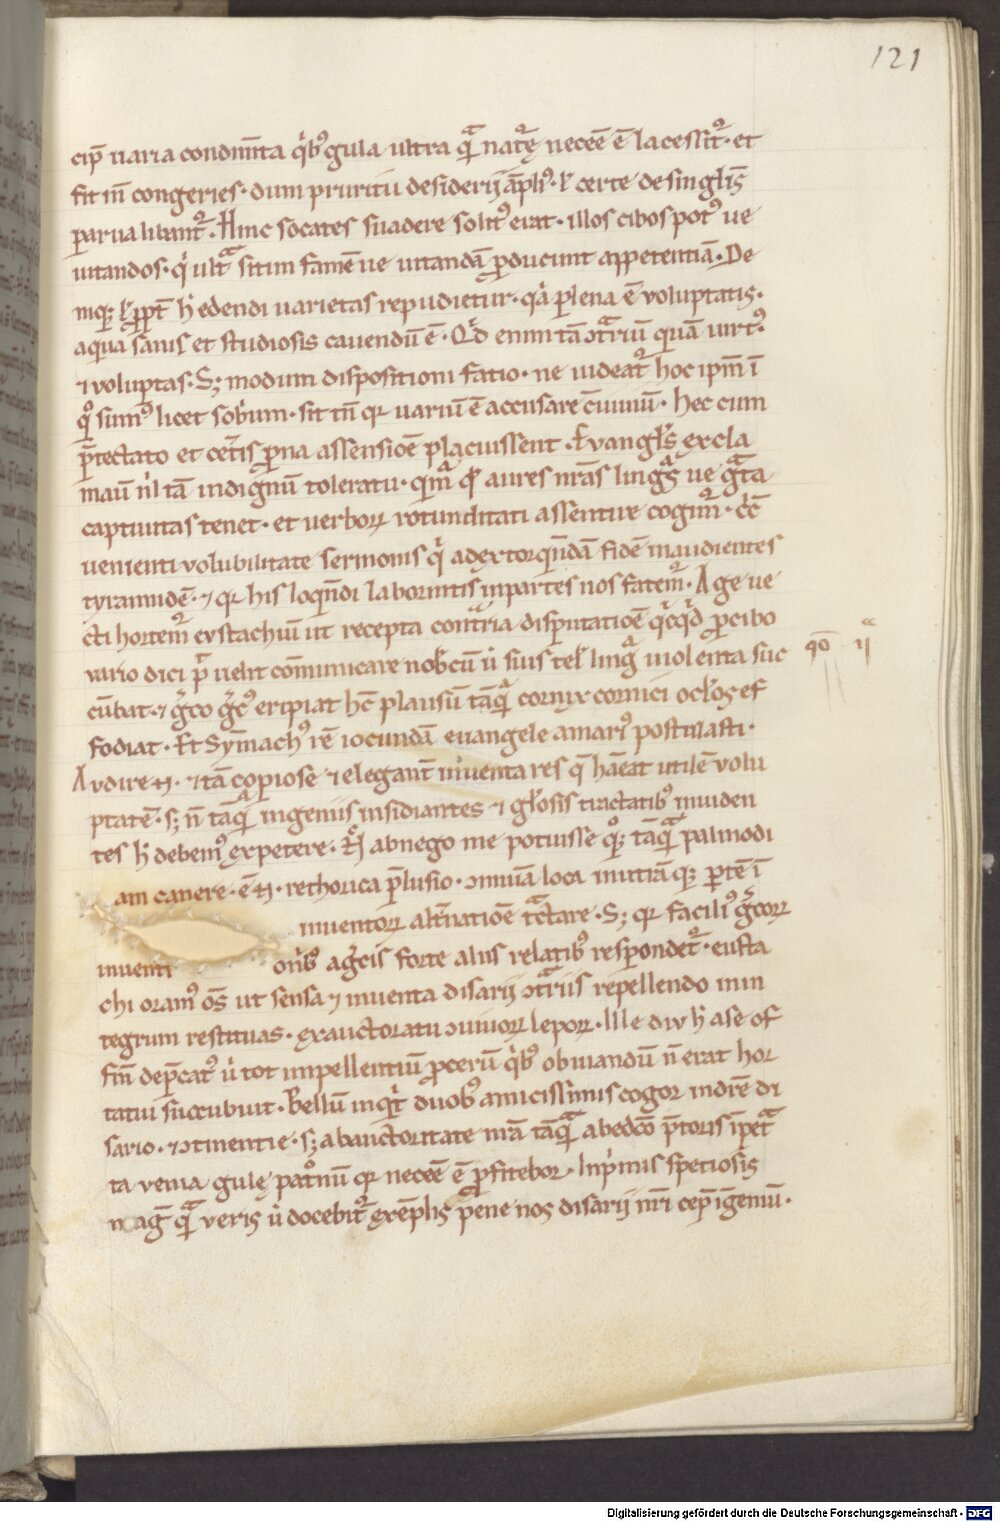 121
cip̄ uaria condim̄ta q̇bꝰ gula ultra q̄ nat᷑ę necēe ē lacessit᷑· et
fit in̄ congeries· dum pruritū desiderij āplꝰ· ł certe de singl̄is
parua libant᷑· Hinc socates suadere solitꝰ erat· illos cibos potꝰ ue
uitandos· q̇ ult̄ sitim famē ue uitandā ꝓducunt appetentiā· De
edendi uarietas repudietur· q̇a plena ē voluptatis·
aqua sanis et studiosis cauendū ē· Qḋ enim tā ↄt̄riū quam uirtꝰ·
⁊ voluptas· S; modum dispositioni facio· ne uideat᷑ hoc ip̄m ī
qͦ simꝰ licet sobrium· sit tn̄ qꝛ uariū ē accusare ↄuiuiū· hec cum
p̄tectato et cet᷑is ꝓna assensiōe placuissent· Evangl̄s excla
mau̇ nl̇ tā indignū toleratu· qm̄ qͣ aures nr̄as lingͣ ue gͣta
captiuitas tenet· et uerboꝝ rotunditati assentire cogim᷑· cͥc̄
uenienti volubilitate sermonis q̇ ad extorqn̄dā fidē inaudientes
tyrannidē· ⁊ qꝛ his loqn̄di laborintis inpartes nos fatem᷑· Age ue
cti hortem᷑ evstachiū ut recepta cont̄ria disputatiōe qͥcqͥd ꝓcibo
vario dici p̄ uelit cōmunicare nobcū u̇ suis tel' lingͣ uiolenta suc
qō ij
cūbat· ⁊ gͣco gͣcꝰ eripiat hc̄ plausū tāqͣ cornix cornici ocl̄os ef
fodiat· Et Sym̄achꝰ rē iocundā euangele amariꝰ postulasti·
Avdire · ⁊ tā copiose ⁊ elegant inuenta res q̄ hāeat utilē volu
ptatē· s; n̄ tāqͣ ingeniis insidiantes ⁊ gl̄osis tractatibꝰ inuiden
tes h̄ debemꝰ expetere· abnego me potuisse qͦ; tāqͣ palinodi
am canere· ē · rethorica p̄lusio· ↄmuīa loca inutrāq; partē ī
inuentoꝝ alt᷑natiōe tͣctare· S; qꝛ faciliꝰ gͣcoꝝ
inuenti onibꝰ agͣcis forte aliis relatibꝰ respondet᷑· eusta
chi oramꝰ ōs ut sensa ⁊ inuenta disarij ↄt̄riis repellendo inin
tegrum restituas· exauctoratu ↄuiuioꝝ lepoꝝ· Ille div h̄ ase of
fīn dep̄catꝰ u̇ tot impellentiū ꝓcerū q̇bꝰ obuiandū n̄ erat hor
tatui succubuit· Bellū inqͥt duobꝰ amicissimis cogor indr̄e di
sario· ⁊ ↄtinentie· s; abauctoritate nr̄a tāqͣ abedcͦo p̄toris īpetͣ
ta venia gulę patͦnū qꝛ necēe ē ꝓfitebor· Inṗmis speciosis
mag̅ qͣ veris u̇ docebit᷑ exēplis pene nos disarij nr̄i cep̄ īgeniū·
Digitalisierung gefördert durch die Deutsche Forschungsgemeinschaft - DFG